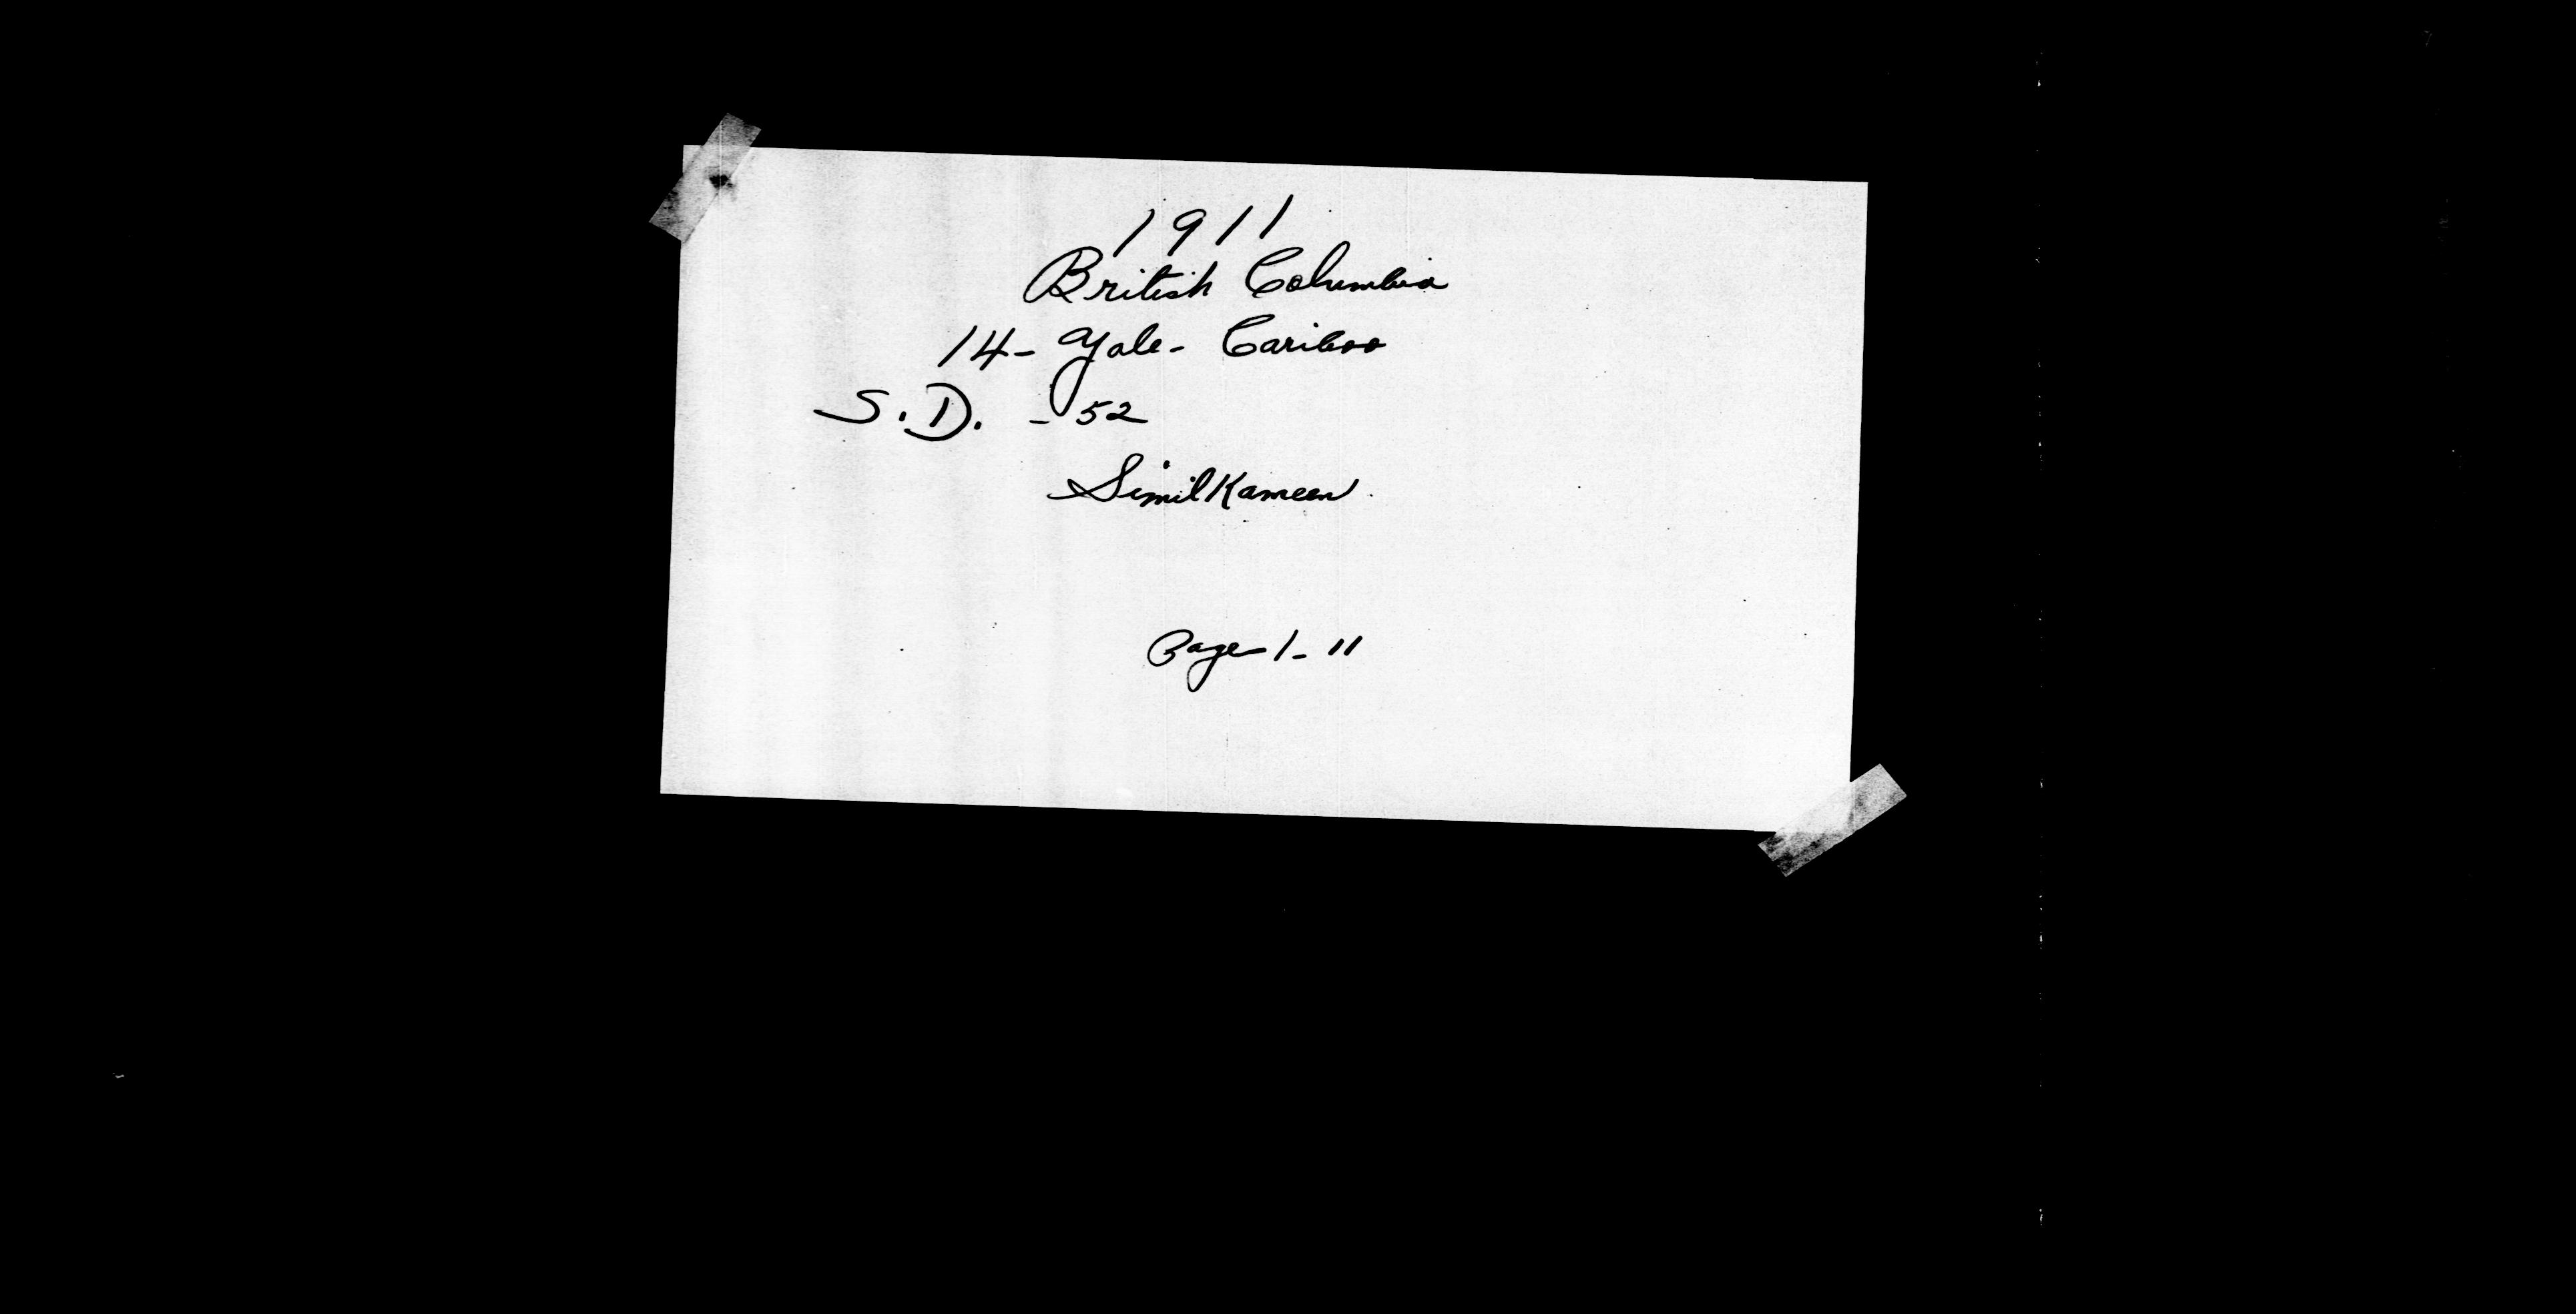 1911
British Columbia
14- Yale- Cariboo
S.D. - 52
SimilKameen
Page 1- 11